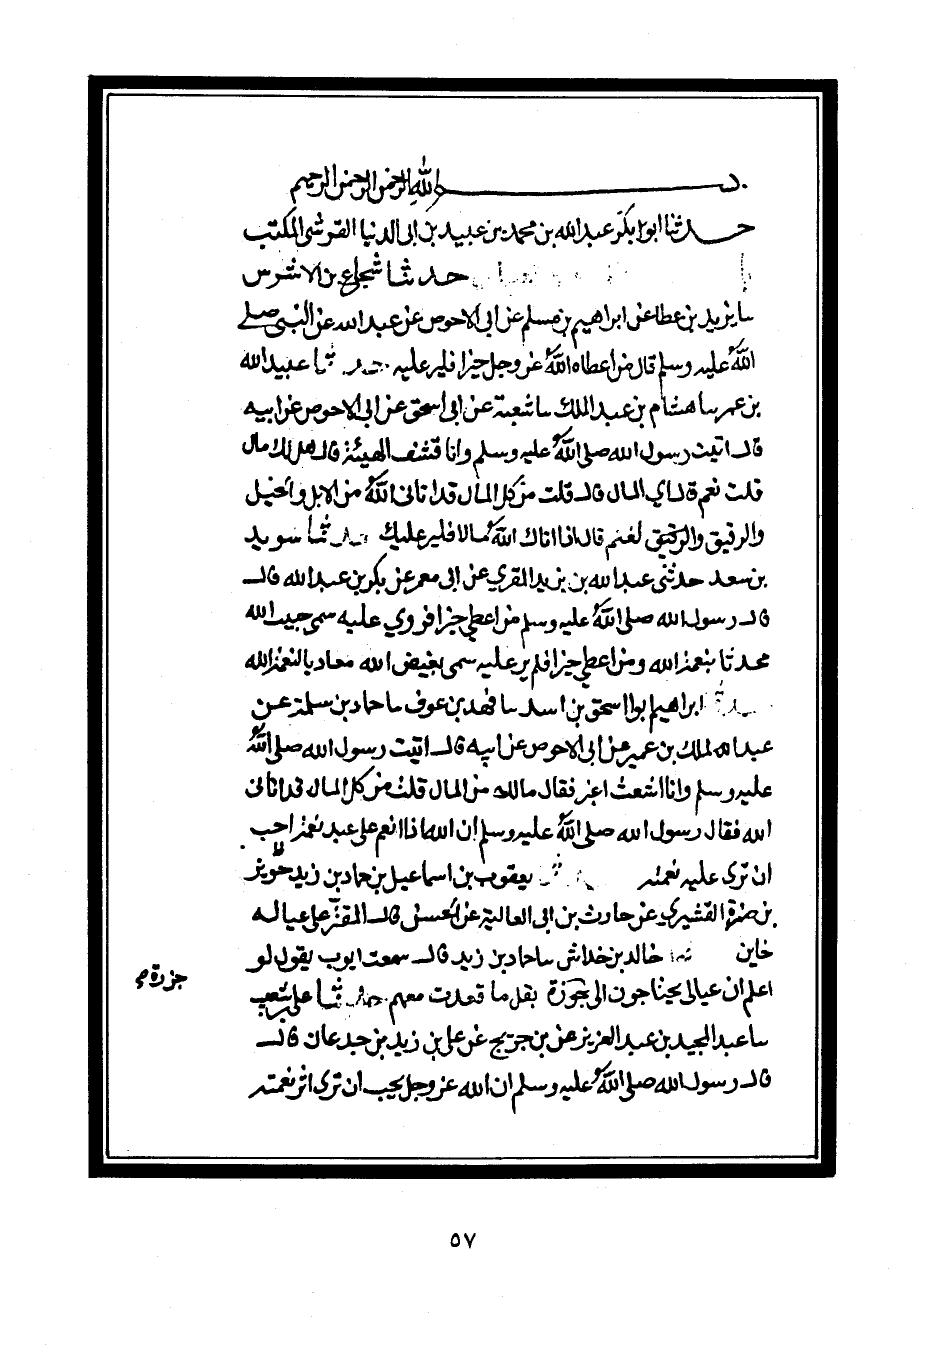 بسم الله الرحمن الرحيم
حدثنا ابو ابكر عبدالله بن محمد بن عبيد بن ابى الدنيا القرشى المكتب
حدثنا شجاع بن الاشرس
سا يزيد بن عطا عن ابراهيم بن مسلم عن ابى الاحوص عن عبد الله عن النبى صلى
الله عليه وسلم قال من اعطاه الله عز وجل خيرا فلير عليه حدثنا عبيدالله
بن عمر سا هشام بن عبد الملك سا شعبة عن ابى اسحق عن ابى الاحوص عن ابيه
قال اتيت رسول الله صلى الله عليه وسلم وانا قشف الهيئة قال هل لك مال
قلت نعم قال اي المال قال قلت من كل المال قد اتانى الله من الابل والخيل
والرقيق والرقيق لغنم قال اذا اتاك الله مالا فلير عليك حدثنا سويد
بن سعد حدثنى عبد الله بن يزيد المقري عن ابى معمر عن بكر بن عبد الله قال
قال رسول الله صلى الله عليه وسلم من اعطي خيرا فروي عليه سمى حبيب الله
محدثا بنعمة الله ومن اعطي خيرا فلم ير عليه سمى بغيض الله معاديا لنعمة الله
حدثنا ابراهيم بوا اسحق بن اسد سا فهد بن عوف سا حماد بن سلمة عن
عبد الملك بن عمير عن ابى الاحوص عن ابيه قال اتيت رسول الله صلى الله
عليه وسلم وانا اشعث اغبر فقال مالك من المال قلت من كل المال قد اتانى
الله فقال رسول الله صلى الله عليه وسلم ان الله اذا انعم على عبد نعمة احب
ان ترى عليه نعمته يعقوب بن اسماعيل بن حماد بن زيد
بن ضمرة القشيري عن حارث بن ابى العالية عن الحسن قال المقتر على عياله
خاين ثنا خالد بن خداش سا حماد بن زيد قال سمعت ايوب يقول لو
اعلم ان عيالى يحتاجون الى جرزة بقل ما قعدت معهم حدثنا على بن شعيب
جرزة م
سا عبد المجيد بن عبد العزيز عن بن جريج عن على بن زيد بن جدعان قال
قال رسول الله صلى الله عليه وسلم ان الله عز وجل يحب ان ترى اثر نعمته
٥٧